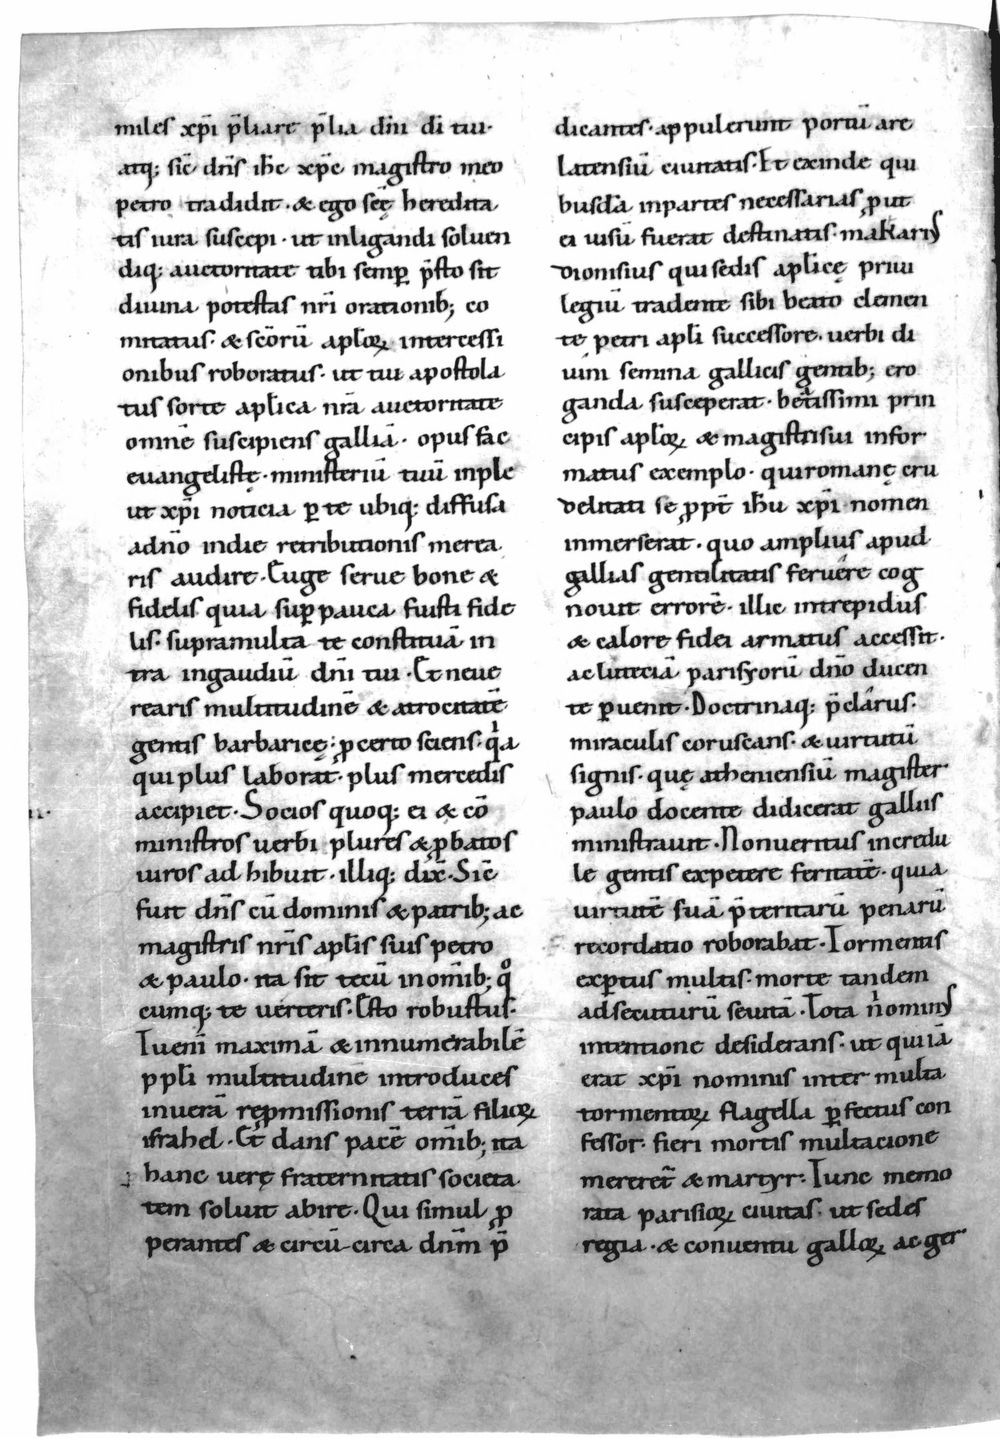 miles xp̄i p̄liare p̄lia dn̄i dī tui·
atq; sic̄ dn̄s ih̄c xp̄c magistro meo
petro tradidit · & ego sc̄ę heredita
tis iura suscepi · ut inligandi soluen
diq; auctoritate tibi semp̲ p̄sto sit
diuina potestas nr̄i orationib; co
mitatus · & scōrū apl̄oꝝ intercessi
onibus roboratus · ut tui apostola
tus sorte aplīca nr̄a auctoritate
omnē suscipiens galliā · opus fac
euangelistę · ministeriū tuū inple
ut xp̄i noticia ꝑ te ubiq; diffusa
adnō indie retributionis merea
ris audire · Euge serue bone &
fidelis quia suꝑ pauca fuisti fide
lis · supramulta te constituā in
tra ingaudiū dn̄i tui · Et neue
rearis multitudinē & atrocitatē
gentis barbaricę · ꝓcerto sciens · qͣa
qui plus laborat · plus mercedis
accipiet · Socios quoq; ei & cō
ministros uerbi plures & ꝓbatos
uiros ad hibuit · illiq; dix̄ · Sic̄
fuit dn̄s cū dominis & patrib; ac
magistris nr̄is apl̄is suis petro
& paulo · ita sit tecū in om̄ib; qͦ
cumq; te uerteris · Esto robustus·
Tuenī maximā & innumerabilē
ppl̄i multitudinē introduces
inuerā reꝓmissionis terrā filioꝝ
israhel · Et dans pacē om̄ib; ita
hanc uerę fraternitatis societa
tem soluit abire · Qui simul ꝓ
perantes & circū circa dnm̄ p̄
dicantes · appulerunt portū are
latensiū ciuitatis · Et exinde qui
busdā inpartes necessarias ꝓut
ei uisū fuerat destinatis · makarius
dionisius qui sedis aplīcę priui
legiū tradente sibi beato clemen
te petri apl̄i successore · uerbi di
uini semina gallicis gentib; ero
ganda susceperat · beatissimi prin
cipis apl̄oꝝ & magistri sui infor
matus exemplo · qui romanę cru
delitati se ꝓpt̄ ih̄u xp̄i nomen
inmerserat · quo amplius apud
gallias gentilitatis feruere cog
nouit errorē · illic intrepidus
& calore fidei armatus accessit ·
ac luteciā parisyorū dn̄o ducen
te ꝑuenit · Doctrinaq; p̄clarus·
miraculis coruscans · & uirtutū
signis · quę atheniensiū magister
paulo docente didicerat gallis
ministrauit · Non ueritus incredu
le gentis expetere feritatē · quia
uirtutē suā p̄teritarū penarū
recordatio roborabat · Tormentis
exꝑtus multis · morte tandem
adsecuturū seuitā · Tota nͥ nominis
intentione desiderans · ut qui iā
erat xp̄i nominis inter multa
tormentoꝝ flagella ꝑfectus con
fessor · fieri mortis multacione
mereret̄ & martyr · Tunc memo
rata parisioꝝ ciuitas · ut sedes
regia · & conuentu galloꝝ ac ger